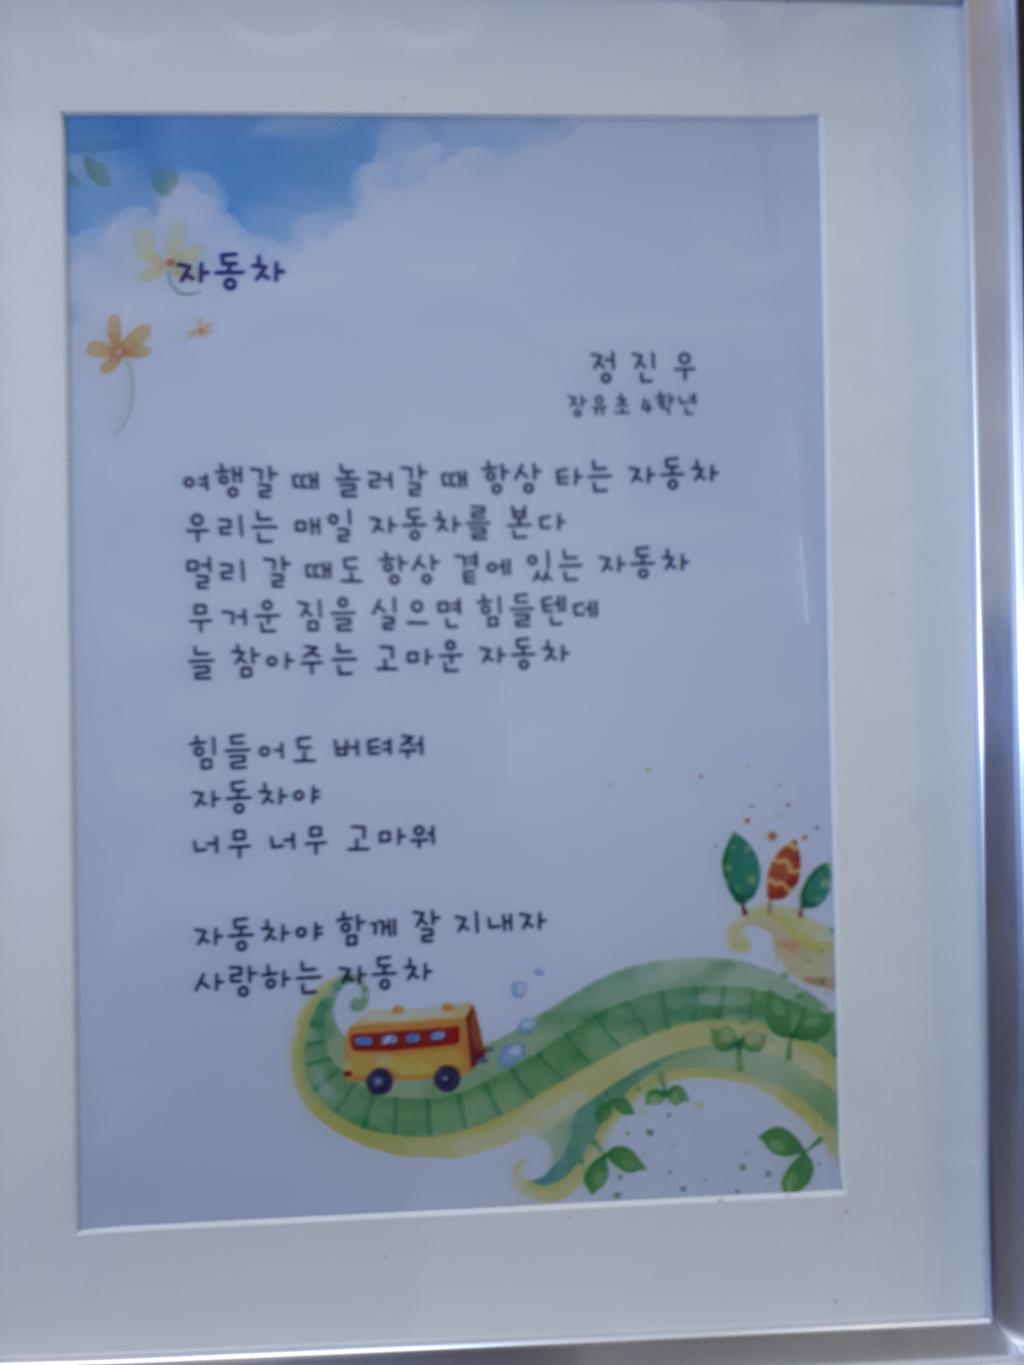 자동차
정 진 우
장유초 4학년
여행갈 때 놀러갈 때 항상 타는 자동차
우리는 매일 자동차를 본다
멀리 갈 때도 항상 곁에 있는 자동차
무거운 짐을 실으면 힘들텐데
늘 참아주는 고마운 자동차
힘들어도 버텨줘
자동차야
너무 너무 고마워
자동차야 함께 잘 지내자
사랑하는 자동차